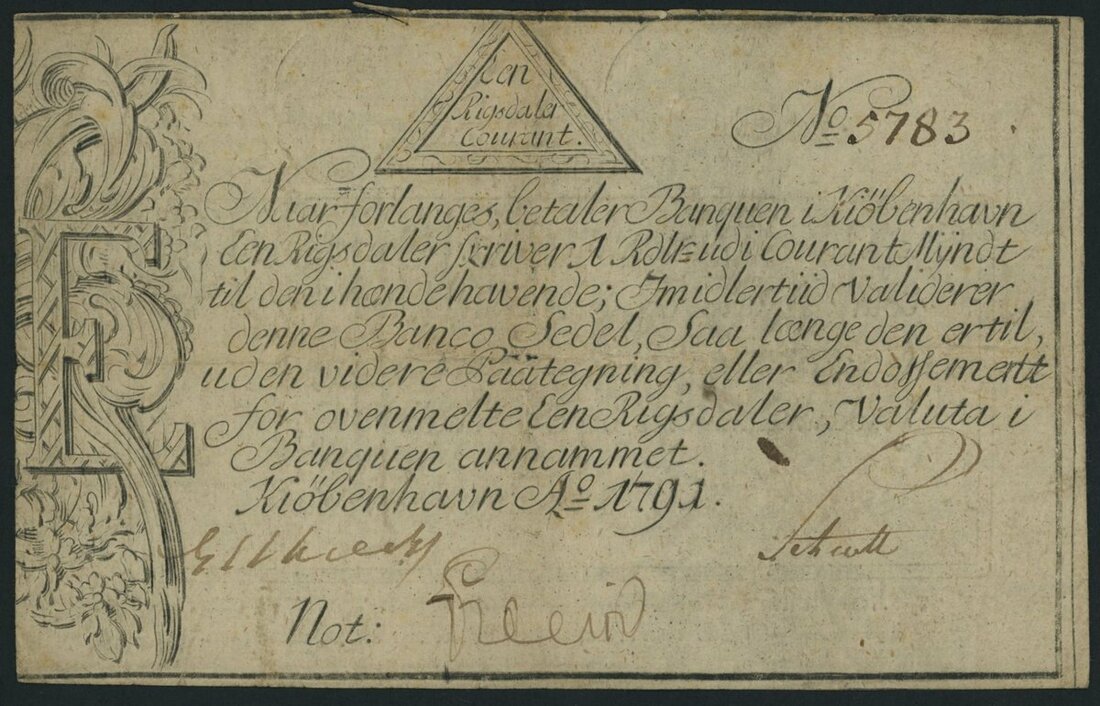 Een
Rigsdaler
Courant.
No 5783
Naar forlanges, betaler Banquen i Kiöbenhavn
Een Rigsdaler skriver 1 Rdlr= ud i Courant Mÿndt
til den i hænde havende; Imidlertiid validerer
denne Banco Sedel, Saa længe den er til,
uden videre Paategning, eller Endossement
for ovenmelte Een Rigsdaler, Valuta i
Banquen annammet.
Kiöbenhavn Ao 1791.
Not: